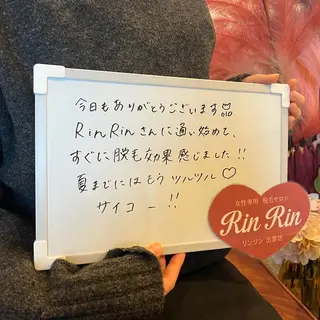 今日もありがとうございます
RinRinさんに通い始めて、
すぐに脱毛効果感じました!!
夏までにはもうツルツル♡
サイコー!!
女性専用 脱毛サロン
Rin Rin
リンリン 出雲店